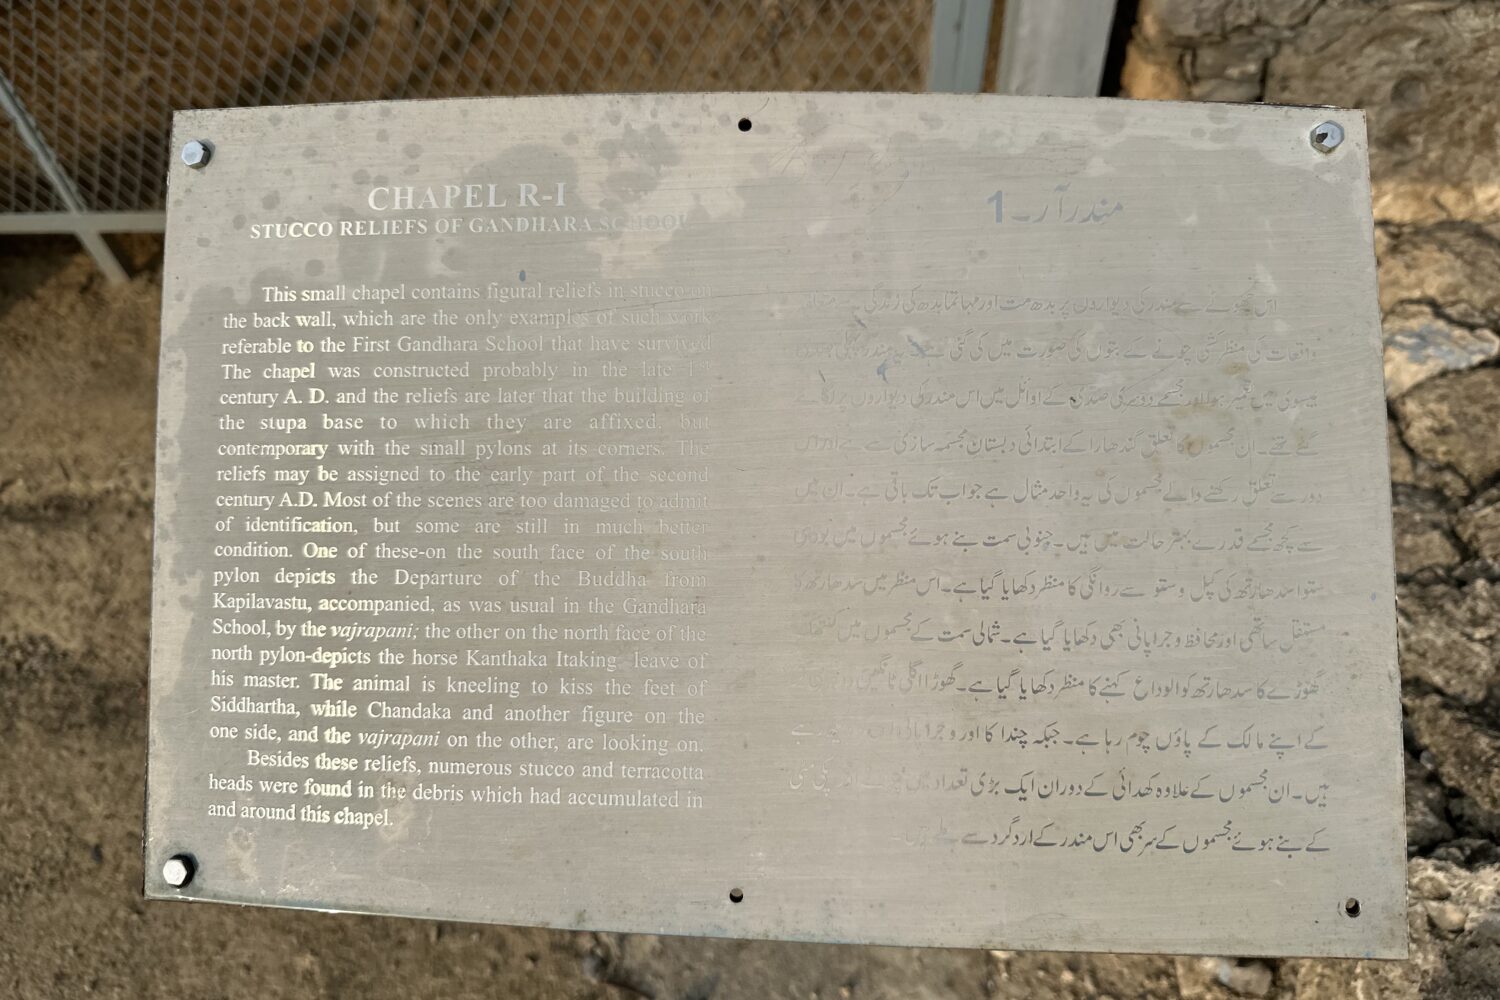 CHAPEL R-I
STUCCO RELIEFS OF GANDHARA SCHOOL
This small chapel contains figural reliefs in stucco on
the back wall, which are the only examples of such work
referable to the First Gandhara School that have survived
The chapel was constructed probably in the late 1st
century A. D. and the reliefs are later that the building of
the stupa base to which they are affixed, but
contemporary with the small pylons at its corners. The
reliefs may be assigned to the early part of the second
century A.D. Most of the scenes are too damaged to admit
of identification, but some are still in much better
condition. One of these-on the south face of the south
pylon depicts the Departure of the Buddha from
Kapilavastu, accompanied, as was usual in the Gandhara
School, by the vajrapani; the other on the north face of the
north pylon-depicts the horse Kanthaka Itaking leave of
his master. The animal is kneeling to kiss the feet of
Siddhartha, while Chandaka and another figure on the
one side, and the vajrapani on the other, are looking on.
Besides these reliefs, numerous stucco and terracotta
heads were found in the debris which had accumulated in
and around this chapel.
مندر آر۔1
اس چھوٹے سے مندر کی دیواروں پر بدھ مت اور مہاتما بدھ کی زندگی سے
واقعات کی منظر کشی چونے کے بتوں کی صورت میں کی گئی ہے۔ یہ مندر پہلی صدی
عیسوی میں تعمیر ہوا اور مجسمے دوسری صدی کے اوائل میں اس مندر کی دیواروں پر لگائے
گئے تھے۔ ان مجسموں کا تعلق گندھارا کے ابتدائی دبستان مجسمہ سازی سے ہے اور اس
دور سے تعلق رکھنے والے مجسموں کی یہ واحد مثال ہے جو اب تک باقی ہے۔ ان میں
سے کچھ مجسمے قدرے بہتر حالت میں ہیں۔ جنوبی سمت بنے ہوئے مجسموں میں بودھی
ستوا سدھارتھ کی کپل وستو سے روانگی کا منظر دکھایا گیا ہے۔ اس منظر میں سدھارتھ کا
مستقل ساتھی اور محافظ وجراپانی بھی دکھایا گیا ہے۔ شمالی سمت کے مجسموں میں
گھوڑے کا سدھارتھ کو الوداع کہنے کا منظر دکھایا گیا ہے۔ گھوڑا اگلی ٹانگیں
کے اپنے مالک کے پاؤں چوم رہا ہے۔ جبکہ چندا کا اور وجراپانی ہے
ہیں۔ ان مجسموں کے علاوہ کھدائی کے دوران ایک بڑی تعداد میں
کے بنے ہوئے مجسموں کے سر بھی اس مندر کے ارد گرد سے ملے ہیں۔